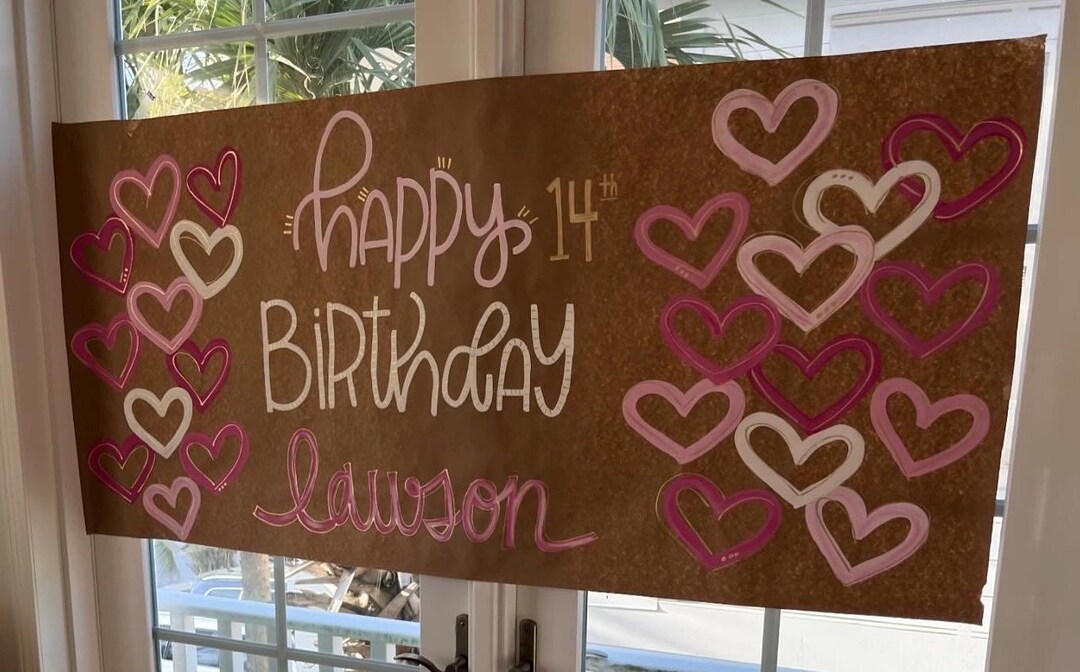 happy 14th
BiRthdAy
lawson